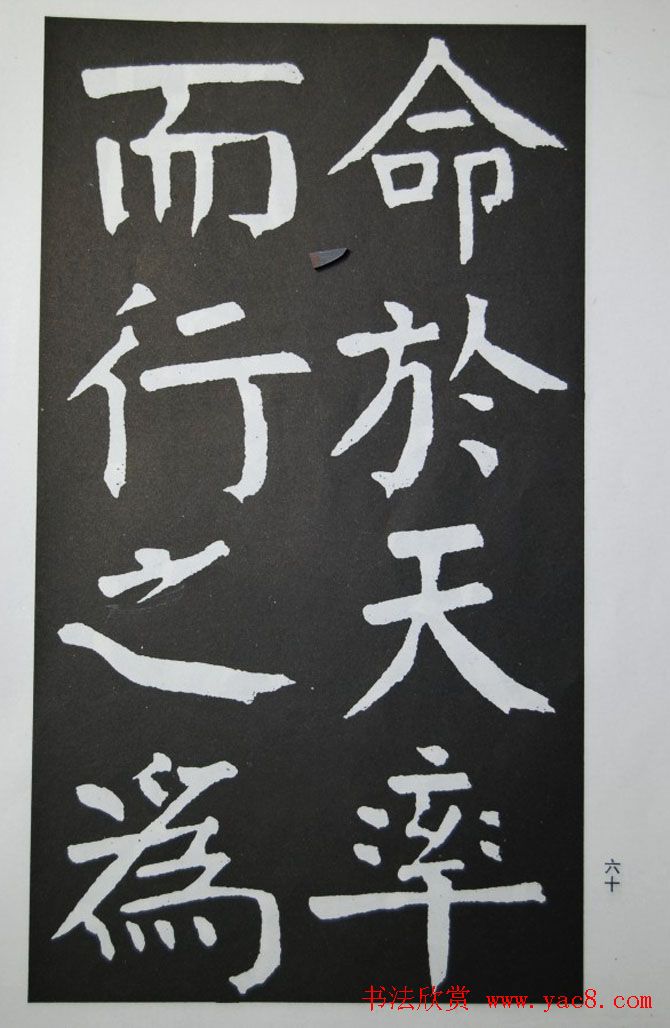 命於天率
而行之為
六十
书法欣赏 www.yac8.com